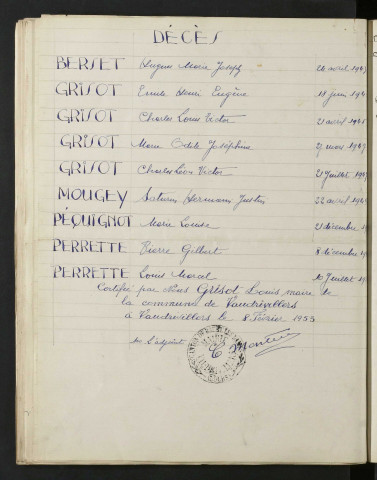 DÉCÈS
BERSET Hugues Marie Joseph 26 avril 194
GRISOT Emile Henri Eugène 11 juin 194
GRISOT Charles Louis Victor 21 avril 194
GRISOT Marie Odile Joséphine 27 mars 194
GRISOT Charles Léon Victor 21 Juillet 19
MOUGEY Saturin Hermann Justin 22 avril 194
PÉQUIGNOT Marie Louise 21 décembre 1
PERRETTE Pierre Gilbert 8 décembre 19
PERRETTE Louis Marcel 10 Juillet 19
Certifié par Nous Grisot Louis maire de
la commune de Vaudrivillers
à Vaudrivillers le 8 Février 1953
L'adjoint